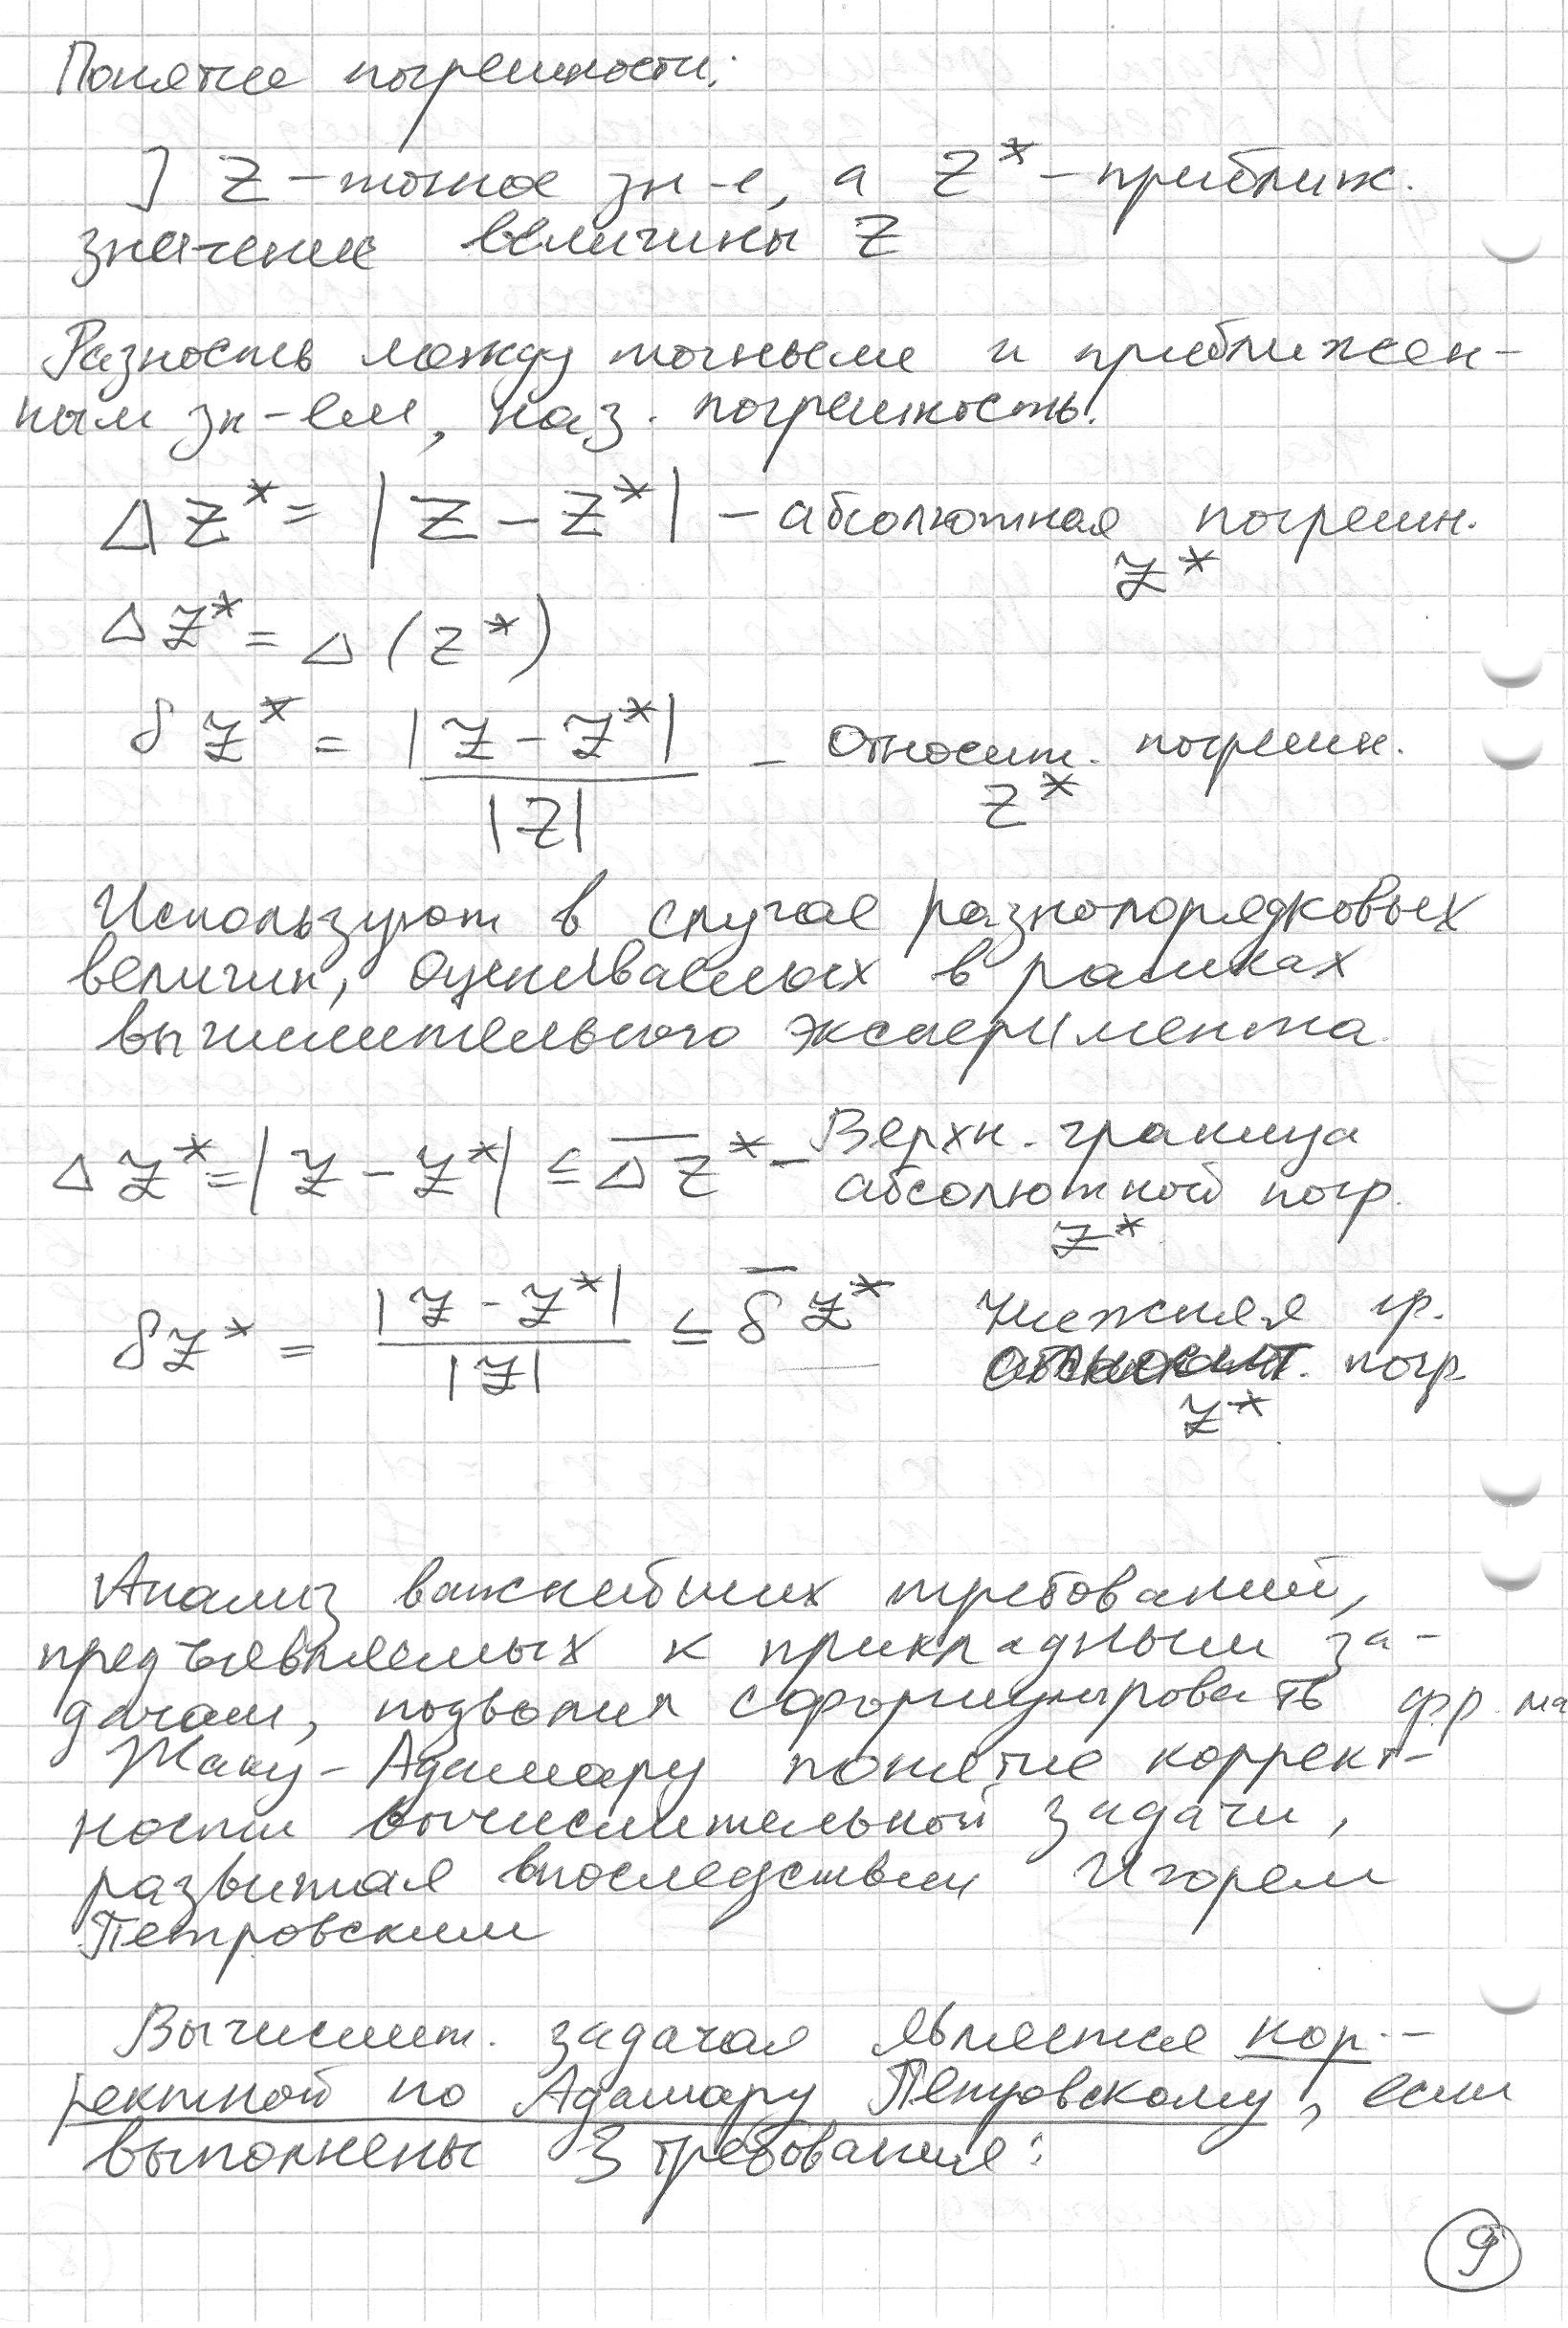 Понятие погрешности:
] Z – точное зн-е, а Z* – приближ.
значение величины Z
Разность между точным и приближен-
ным зн-ем, наз. погрешность.
Δ Z* = | Z – Z* | – абсолютная погрешн.
Z*
Δ Z* = Δ (Z*)
δ Z* = |Z – Z*| / |Z| – Относит. погрешн.
Z*
Используют в случае разнопорядковых
величин, оцениваемых в рамках
вычислительного эксперимента.
Δ Z* = | Z – Z* | ≤ Δ̅ Z* – Верхн. граница
абсолютной погр.
Z*
δ Z* = |Z – Z*| / |Z| ≤ δ̅ Z* Нижняя гр.
относит. погр.
Z*
Анализ важнейших требований,
предъявляемых к прикладным за-
дачам, позволил сформулировать фр. ма
Жаку-Адамару понятие коррект-
ности вычислительной задачи,
развитая впоследствии Игорем
Петровским
Вычислит. задачая является кор-
ректной по Адамару Петровскому, если
выполнены 3 требования:
9